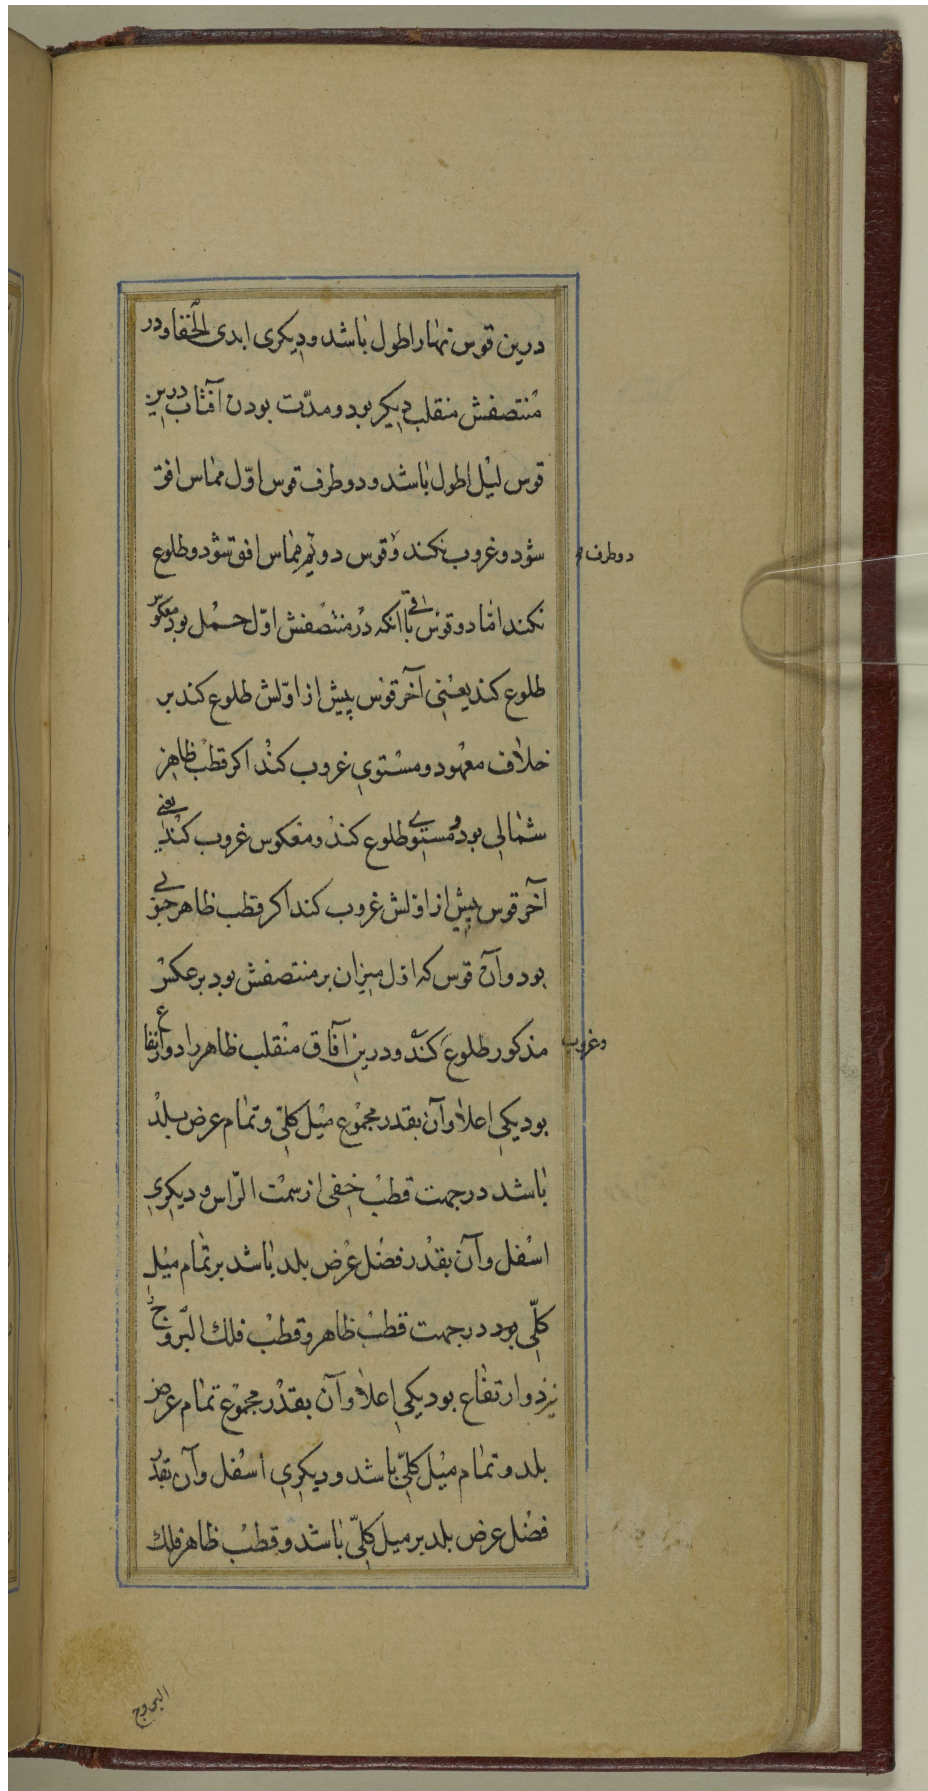 درین قوس نهار اطول باشد و دیکری ابدی الخفا و در
منتصفش منقلب دیکر بود و مدّت بودن آفتاب درین
قوس لیل اطول باشد و دو طرف قوس اوّل مماس افق
شود و غروب نکند و قوس دویم مماس افق شود و طلوع
دو طرف
نکند امّا دو قوس باقی آنکه در منتصفش اوّل حمل بود معکوس
طلوع کند یعنی آخر قوس پیش از اوّلش طلوع کند بر
خلاف معهود و مستوی غروب کند اکر قطب ظاهر
شمالی بود و مستوی طلوع کند و معکوس غروب کند یعنی
آخر قوس پیش از اوّلش غروب کند اکر قطب ظاهر جنوبی
بود و آن قوس که اوّل میزان بر منتصفش بود بر عکس
مذکور طلوع کند و درین آفاق منقلب ظاهر را دو ارتفاع
و غروب
بود یکی اعلا و آن بقدر مجموع میل کلّی و تمام عرض بلد
باشد در جهت قطب خفی از سمت الرّاس و دیکری
اسفل و آن بقدر فضل عرض بلد باشد بر تمام میل
کلّی بود در جهت قطب ظاهر و قطب فلك البروج را
نیز دو ارتفاع بود یکی اعلا و آن بقدر مجموع تمام عرض
بلد و تمام میل کلّی باشد و دیکری اسفل و آن بقدر
فضل عرض بلد بر میل کلّی باشد و قطب ظاهر فلك
البروج